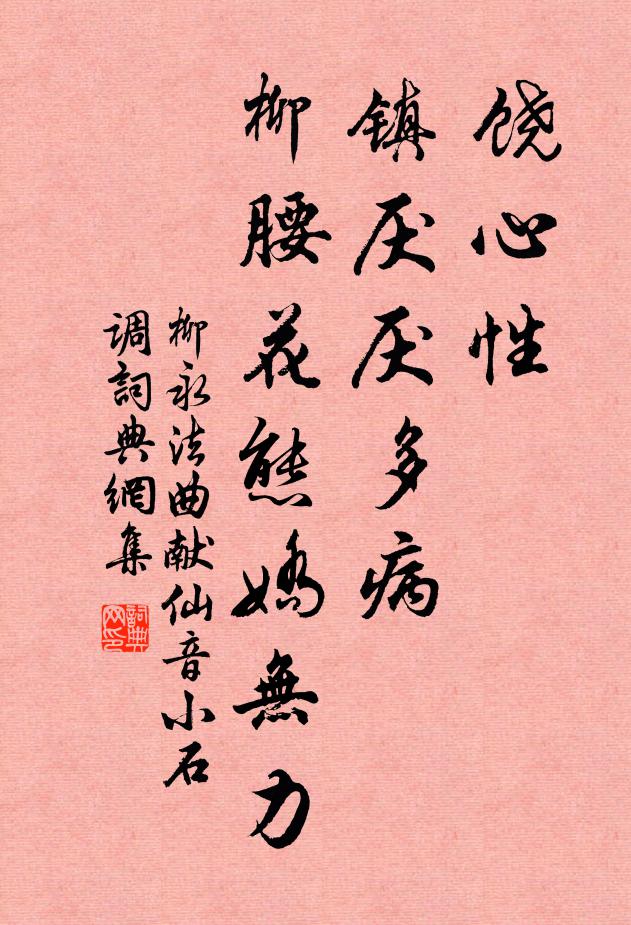 饶心性
镇厌厌多病
柳腰花态嬌無力
柳永法曲献仙音小石
调詞典網集
詞典网印